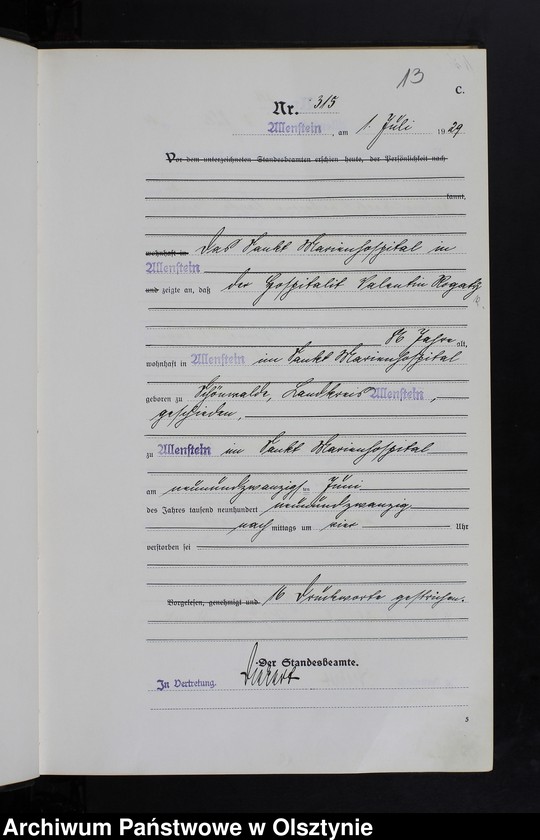 13
C.
Nr. 315
Allenstein, am 1. Juli 1929
Vor dem unterzeichneten Standesbeamten erschien heute, der Persönlichkeit nach
kannt,
wohnhaft in Das Sankt Marienhospital in
Allenstein
und zeigte an, daß der Hospitalit Valentin
86 Jahre alt,
wohnhaft in Allenstein im Sankt Marienhospital
geboren zu Schönwalde, Landkreis Allenstein,
geschieden.
zu Allenstein im Sankt Marienhospital
am neunundzwanzigsten Juni
des Jahres tausend neunhundert neunundzwanzig
nach mittags um vier Uhr
verstorben sei
Vorgelesen, genehmigt und 16 Druckworte gestrichen.
Der Standesbeamte.
In Vertretung.
5
Archiwum Państwowe w Olsztynie